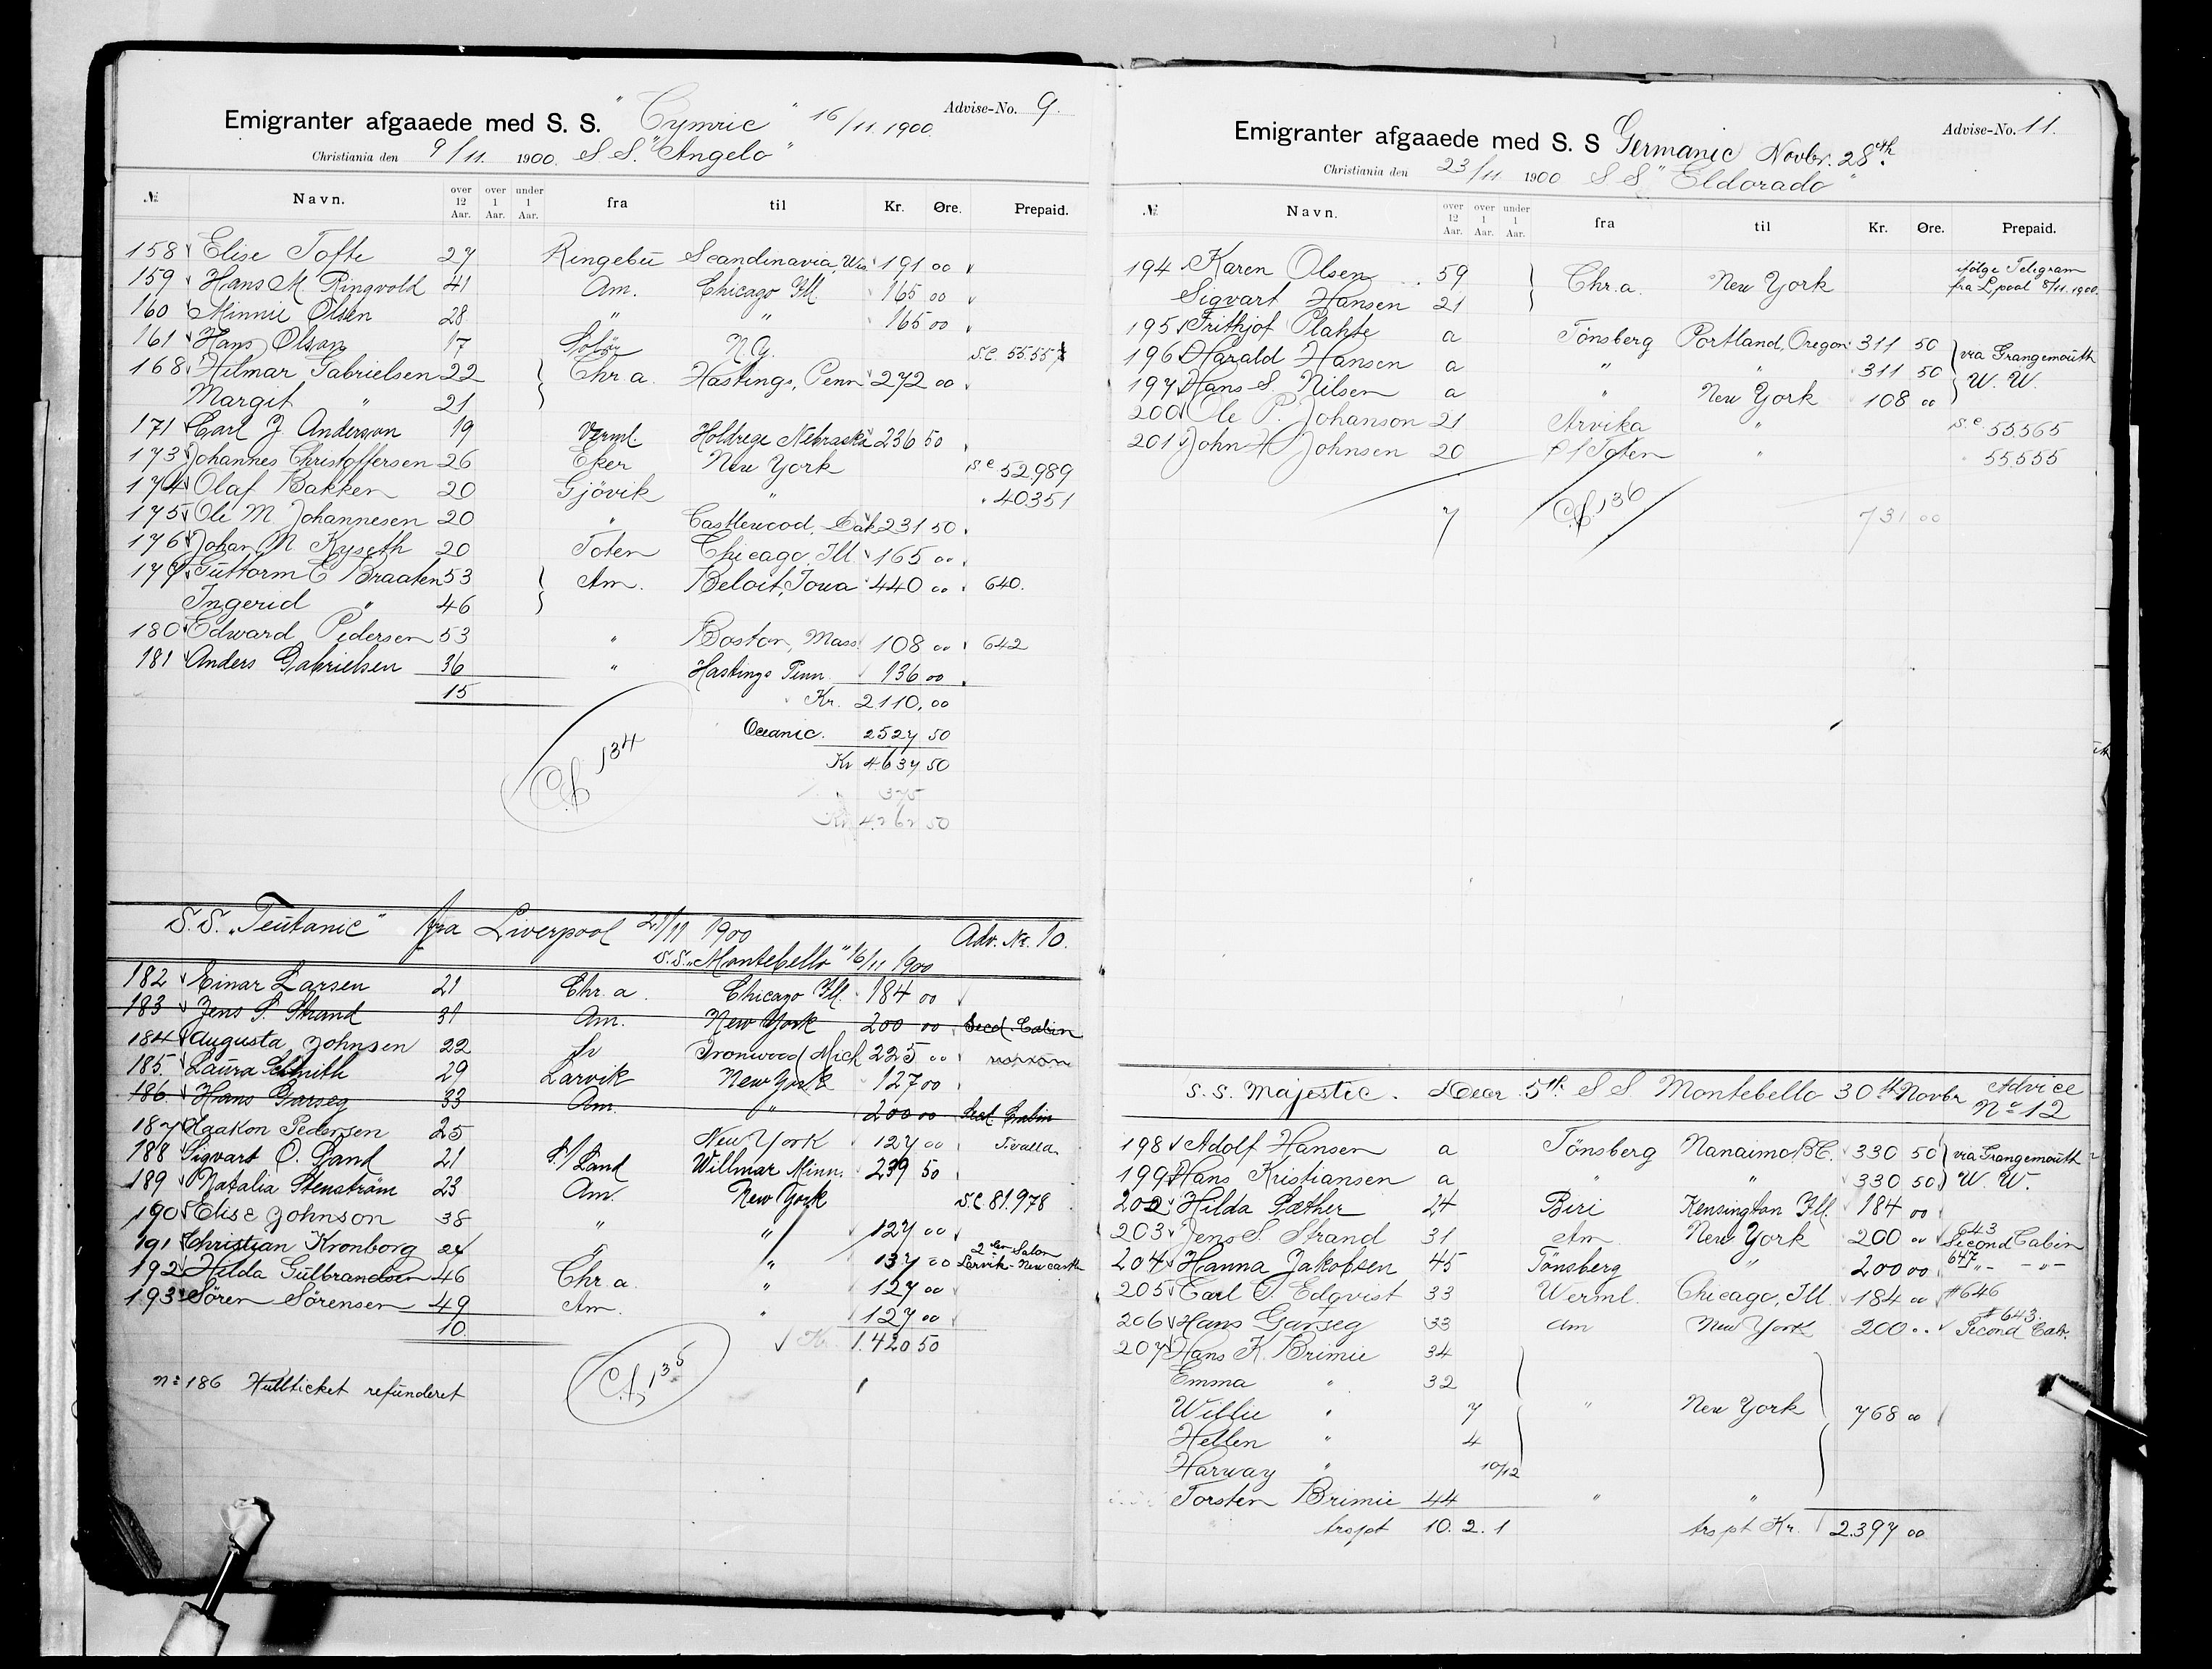 Emigranter afgaaede med S. S. "Cymric" 16/11 1900. Advise-No. 9.
Christiania den 9/11. 1900. S.S. "Angelo"
№ Navn. over 12 Aar. over 1 Aar. under 1 Aar. fra til Kr. Øre. Prepaid.
158 Elise Tofte 27 Ringebu Scandinavia, Wis 191 00
159 Hans M. Ringvold 41 Am. Chicago Ill. 165 00
160 Minnie Olsen 28 " " 165 00
161 Hans Olsen 17 Solör N.Y. S.C. 55.557
168 Hilmar Gabrielsen 22 Chr.a. Hastings, Penn 272 00
Margit " 21
171 Carl J. Anderson 19 Verml. Holdrege Nebraska 236 50
173 Johannes Christoffersen 26 Eker New York S.C. 52.989
174 Olaf Bakken 20 Gjövik " " 40351
175 Ole M. Johannesen 20 " Castlewood, Dak 231 50
176 Johan M. Kyseth 20 Toten Chicago, Ill 165 00
177 Guttorm E Braaten 53 Am. Beloit, Iowa 440 00 640.
Ingerid " 46
180 Edward Pedersen 53 " Boston, Mass. 108 00 642
181 Anders Gabrielsen 36 " Hastings Penn 136 00
15 Kr. 2110.00
Oceanic. 2527 50
134 Kr 4637 50
375
Kr 4262 50
S.S. "Teutanic" fra Liverpool 21/11 1900 Adv. Nr. 10.
S.S. "Montebello" 16/11 1900
182 Einar Larsen 21 Chr.a. Chicago Ill. 184 00
183 Jens S. Strand 31 Am. New York 200 00 Secd. Cabin
184 Augusta Johnsen 22 Ironwood Mich 225 00
185 Laura Schmith 29 Larvik New York 127 00
186 Hans Garseg 33 Am. " 200 00 Secd. Cabin
187 Haakon Pedersen 25 New York 127 00 Tivalla
188 Sigvart O. Sand 21 S/Land Willmar Minn. 239 50
189 Natalia Stenström 23 Am. New York S.C. 81.978
190 Elise Johnson 38 " " 127 00
191 Christian Kronborg 24 " " 137 00 2den Salon Larvik-Newcastle
192 Hilda Gulbrandsen 46 Chr.a. " 127 00
193 Sören Sörensen 49 Am. " 127 00
10. Kr. 1.420 50
135
No 186 Hullticket refunderet
Emigranter afgaaede med S. S Germanic Novbr. 28th. Advise-No. 11.
Christiania den 23/11 1900 S S "Eldorado"
№ Navn. over 12 Aar. over 1 Aar. under 1 Aar. fra til Kr. Øre. Prepaid.
194 Karen Olsen 59 Chr.a. New York ifölge Telegram
Sigvart Hansen 21 fra L.pool 8/11.1900.
195 Frithjof Plahte a Tönsberg Portland, Oregon 311 50 via Grangemouth
196 Harald Hansen a " " 311 50 W. W.
197 Hans S. Nilsen a " New York 108 00
200 Ole P. Johanson 21 Arvika " S.C. 55.565
201 John H Johnsen 20 Toten " " 55.555
7 136 731 00
S. S. Majestic. Decr. 5th S S Montebello 30th Novbr Advice No 12
198 Adolf Hansen a Tönsberg Nanaimo B.C. 330 50 via Grangemouth
199 Hans Kristiansen a " " 330 50 W. W.
202 Hilda Sæther 24 Biri Kensington Ill 184 00
203 Jens S. Strand 31 Am New York 200 00 643 Second Cabin
204 Hanna Jakobsen 45 Tönsberg " 200 00 647 -"- -"-
205 Carl G. Edqvist 33 Werml. Chicago, Ill. 184 00 #646
206 Hans Garseg 33 Am New York 200 .. #643. Second Cab.
207 Hans K. Brimie 34
Emma " 32
Willie " 7 " New York 768 00
Hellen " 4
Harway " 10/12
Torsten Brimie 44 " "
trspt 10. 2. 1 trspt Kr. 2.397 00